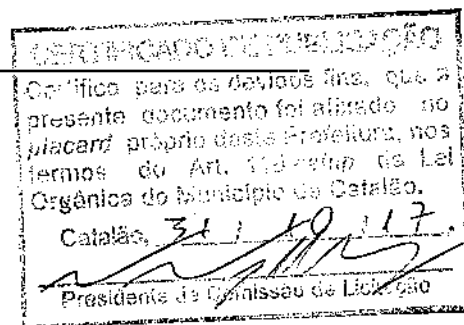 CERTIFICADO DE PUBLICAÇÃO
Certifico para os devidos fins, que o
presente documento foi afixado no
placard próprio desta Prefeitura, nos
termos do Art. da Lei
Orgânica do Município de Catalão.
Catalão, 31 / 10 / 17.
Presidente da Comissão de Licitação